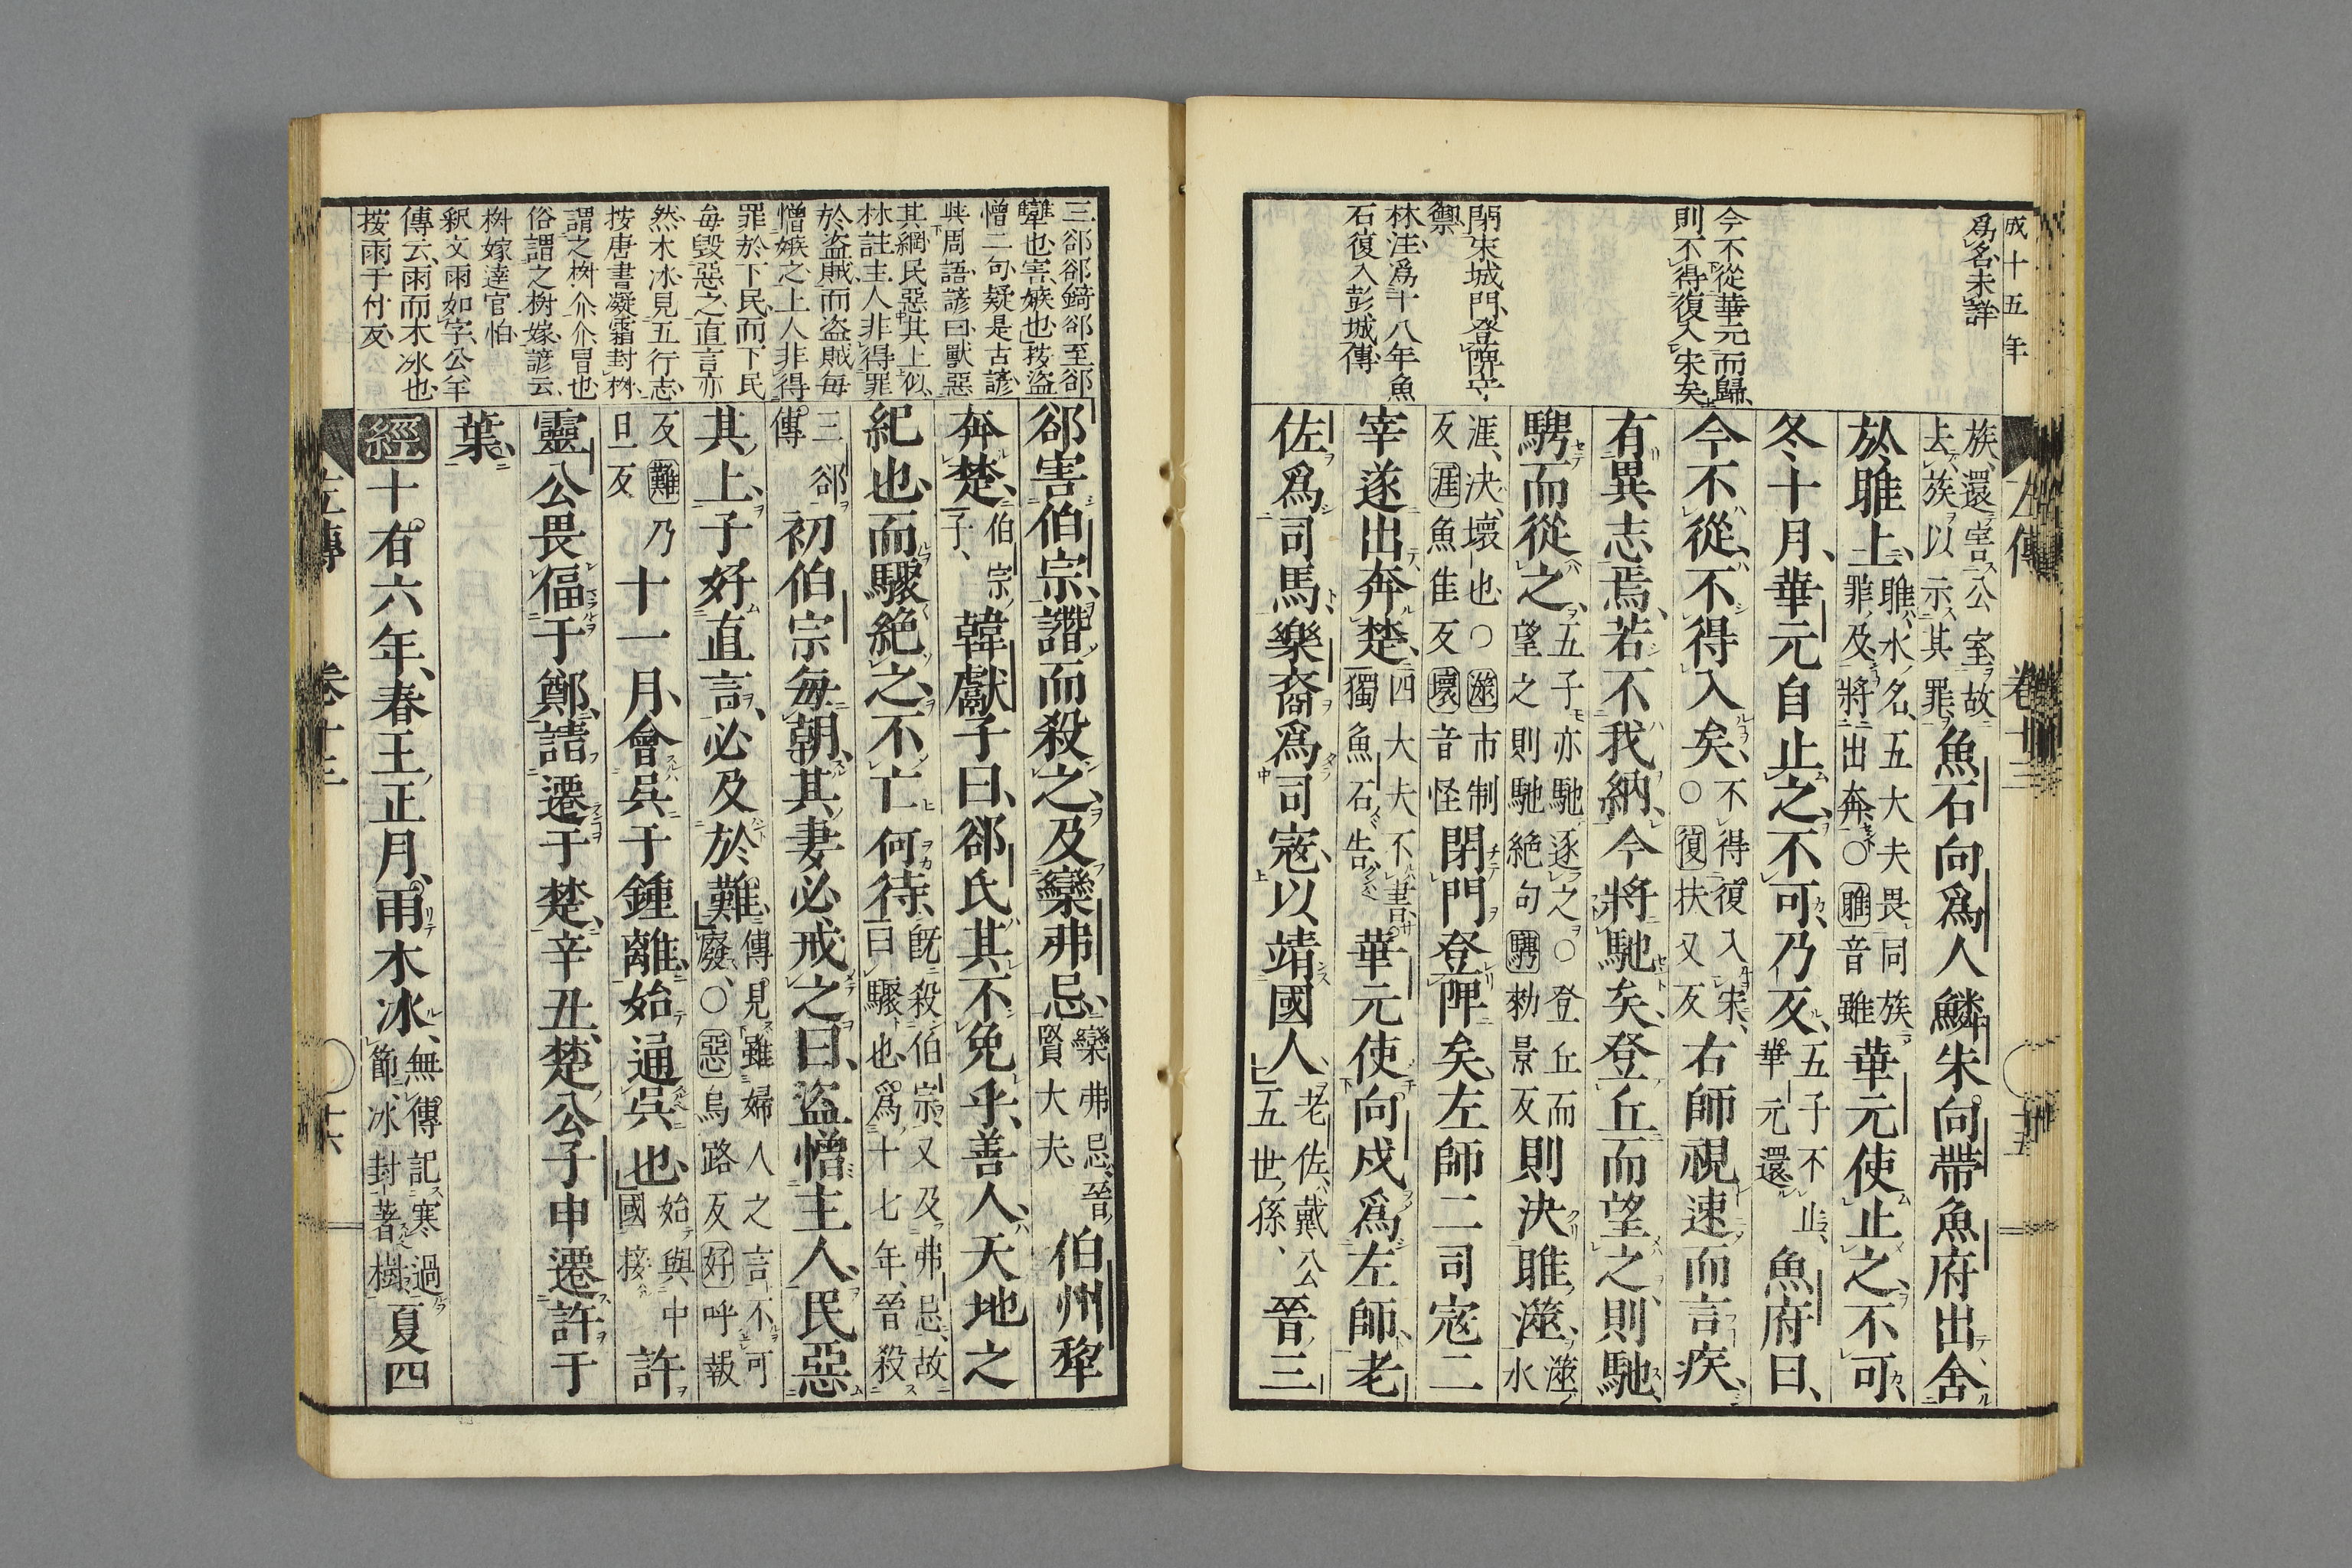 成十五年
爲名未詳
今不從華元而歸
則不得復入宋矣
閉宋城門登陴守
禦
林注爲十八年魚
石復入彭城傳
族還害公室故
去族以示其罪魚石向爲人鱗朱向帶魚府出舍
於睢上睢水名五大夫畏同族
罪及將出奔○睢音雖華元使止之不可
冬十月華元自止之不可乃反五子不止
華元還魚府曰
今不從不得入矣不得復入宋
○復扶又反右師視速而言疾
有異志焉若不我納今將馳矣登丘而望之則馳
騁而從之五子亦馳逐之○登丘而
望之則馳絶句騁勑景反則決睢澨澨
水
涯決壞也○澨市制
反涯魚隹反壞音怪閉門登陴矣左師二司寇二
宰遂出奔楚四大夫不書
獨魚石告華元使向戌爲左師老
佐爲司馬樂裔爲司寇以靖國人老佐戴公
五世孫晉三
左傳 卷十三 十五
三郤郤錡郤至郤
犨也害嫉也按盜
憎二句疑是古諺
與周語諺曰獸惡
其網民惡其上似
林註主人非得罪
於盜賊而盜賊每
憎嫉之上人非得
罪於下民而下民
每毀惡之直言亦
然木冰見五行志
按唐書凝霜封樹
俗謂之樹嫁諺云
樹嫁達官怕
釈文雨如字公羊
傳云雨而木冰也
按雨于付反
郤害伯宗譖而殺之及欒弗忌欒弗忌晉
賢大夫伯州犂
奔楚伯宗
子韓獻子曰郤氏其不免乎善人天地之
紀也而驟絶之不亡何待既殺伯宗又及弗忌故
曰驟也爲十七年晉殺
三郤
傳初伯宗每朝其妻必戒之曰盜憎主人民惡
其上子好直言必及於難傳見雖婦人之言不可
廢○惡烏路反好呼報
反難乃
旦反十一月會吳于鍾離始通吳也始與中
國接許
靈公畏偪于鄭請遷于楚辛丑楚公子申遷許于
葉
經十有六年春王正月雨木冰無傳記寒過
節冰封著樹夏四
左傳 卷十三 十六